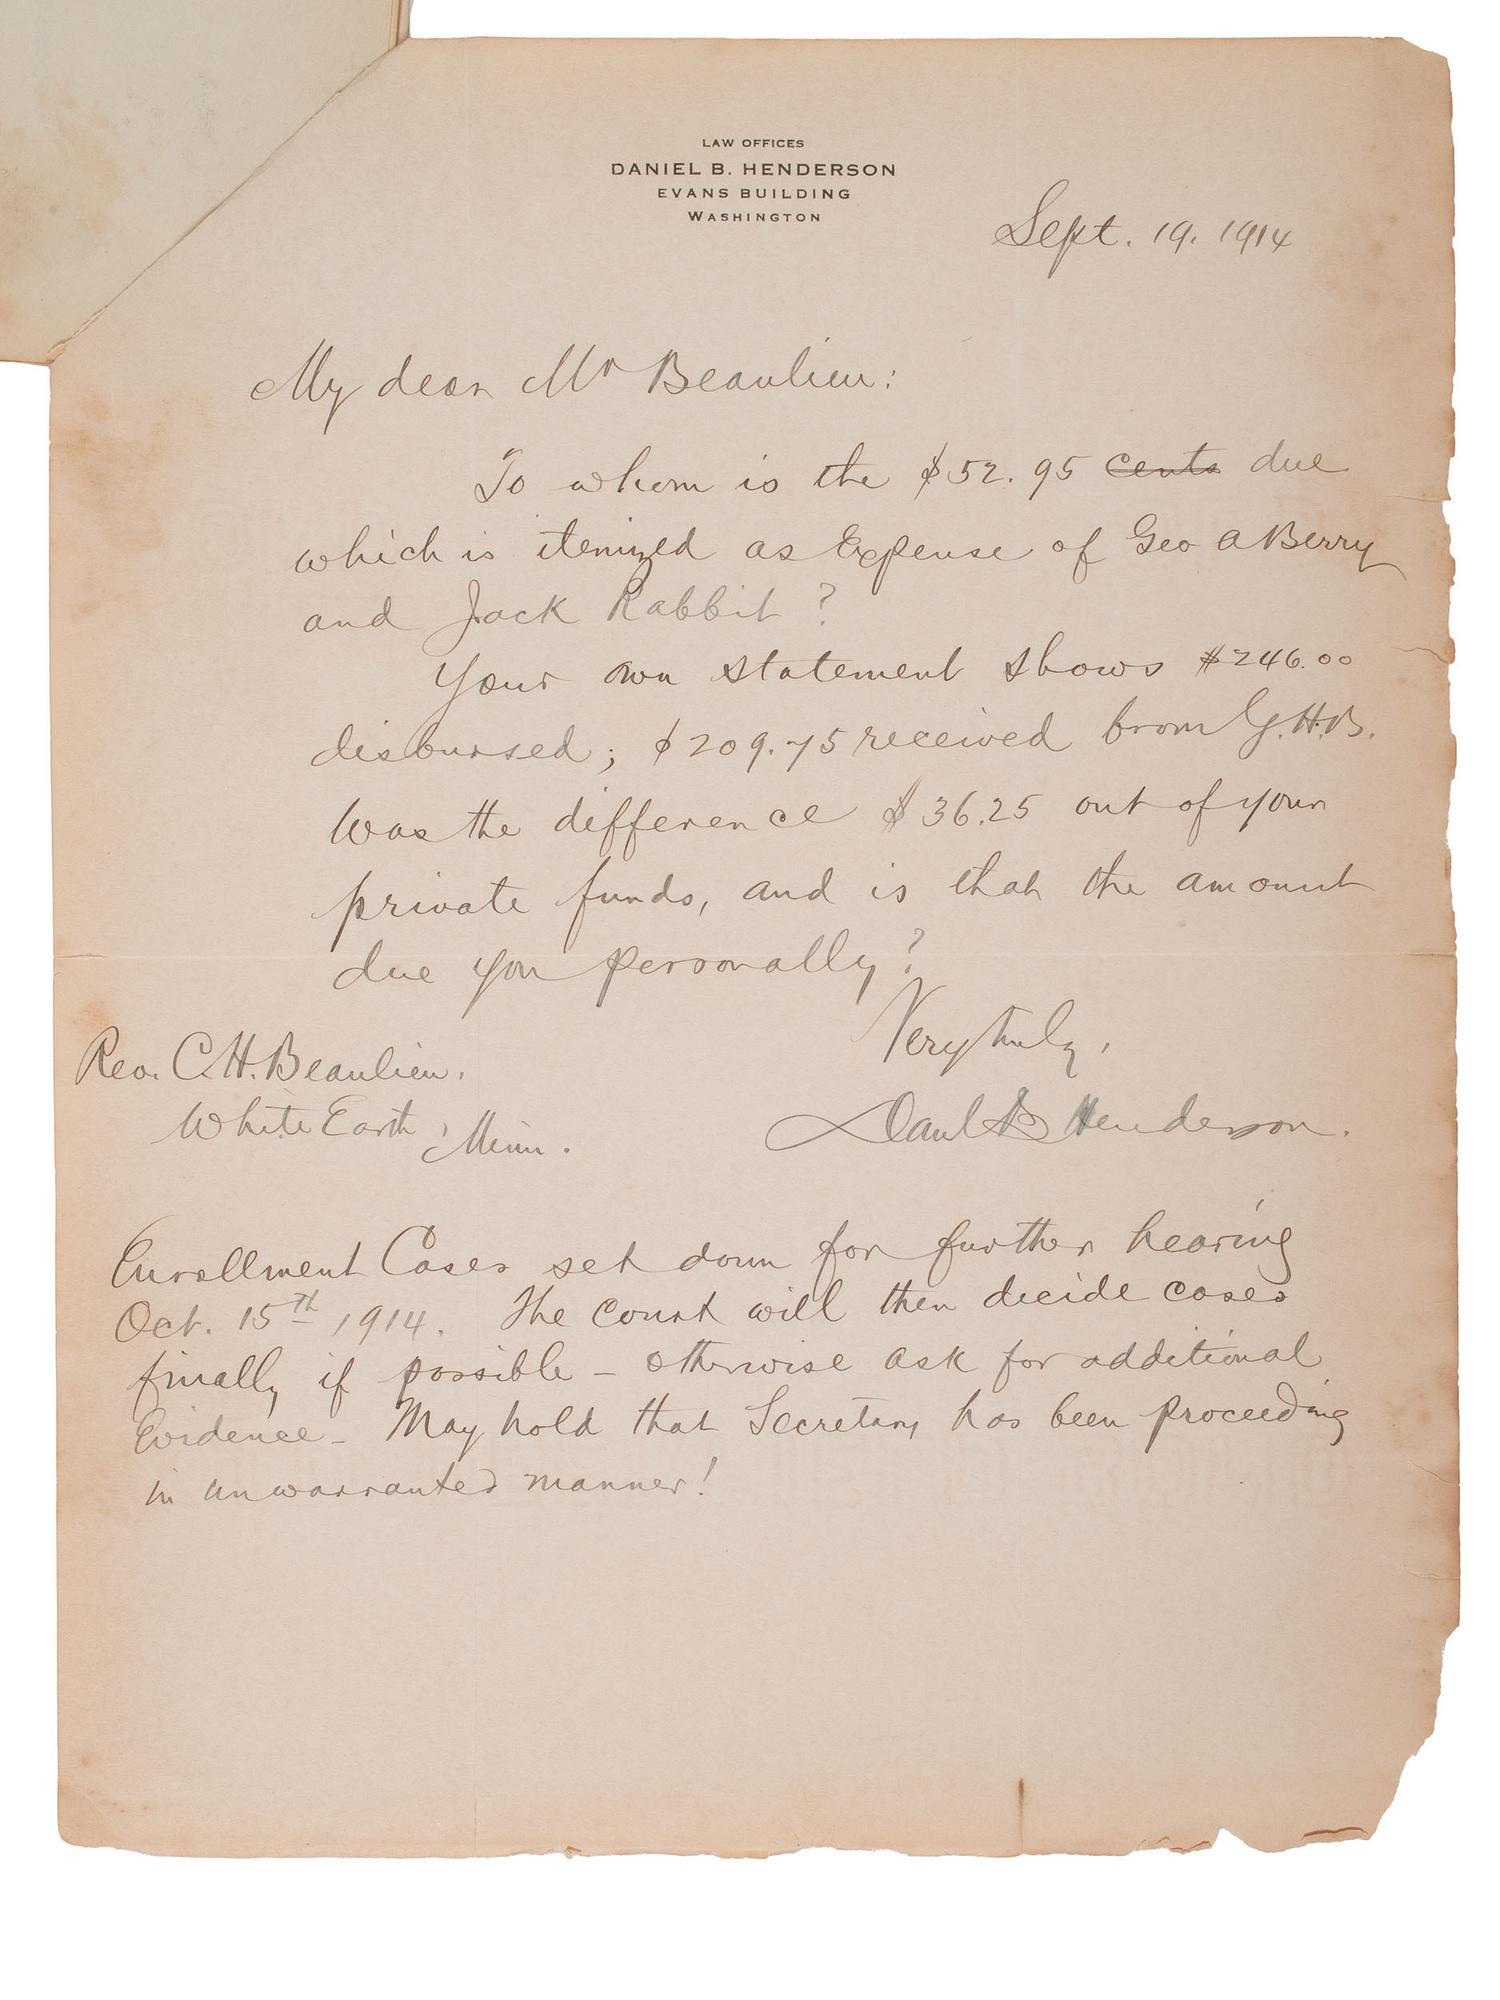 LAW OFFICES
DANIEL B. HENDERSON
EVANS BUILDING
WASHINGTON
Sept. 19. 1914
My dear Mr Beaulieu:
To whom is the $52.95 cents due
which is itemized as Expense of Geo A Berry
and Jack Rabbit?
Your own statement shows $246.00
disbursed; $209.75 received from G.H.B.
Was the difference $36.25 out of your
private funds, and is that the amount
due you personally?
Very truly,
Danl B Henderson.
Rev. C.H. Beaulieu.
White Earth, Minn.
Enrollment Cases set down for further hearing
Oct. 15th 1914. The Court will then decide cases
finally if possible – otherwise ask for additional
Evidence – May hold that Secretary has been proceeding
in unwarranted manner!